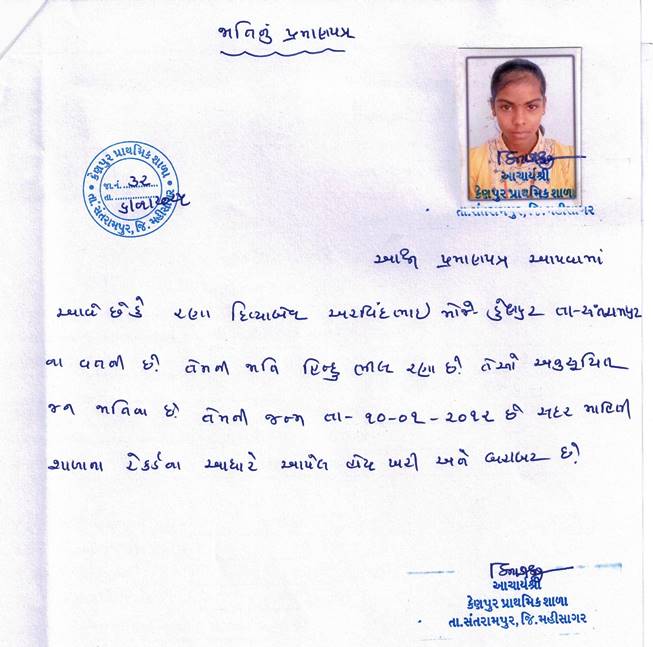 જાતિનું પ્રમાણપત્ર
કેણપુર પ્રાથમિક શાળા
જા.નં. 32
તા.
તા.સંતરામપુર, જિ.મહીસાગર
આચાર્યશ્રી
કેણપુર પ્રાથમિક શાળા
તા.સંતરામપુર, જિ.મહીસાગર
આથી પ્રમાણપત્ર આપવામાં
આવે છે કે રણા દિવ્યાબેન અરવિંદભાઇ મોજે કેણપુર તા-સંતરામપુર
ના વતની છે. તેમની જાતિ હિન્દુ ભીલ રણા છે. તેઓ અનુસૂચિત
જન જાતિના છે. તેમની જન્મ તા- ૧૦-૦૧-૨૦૧૨ છે સદર માહિતી
શાળાના રેકર્ડના આધારે આપેલ હોય ખરી અને બરાબર છે.
આચાર્યશ્રી
કેણપુર પ્રાથમિક શાળા
તા.સંતરામપુર, જિ.મહીસાગર